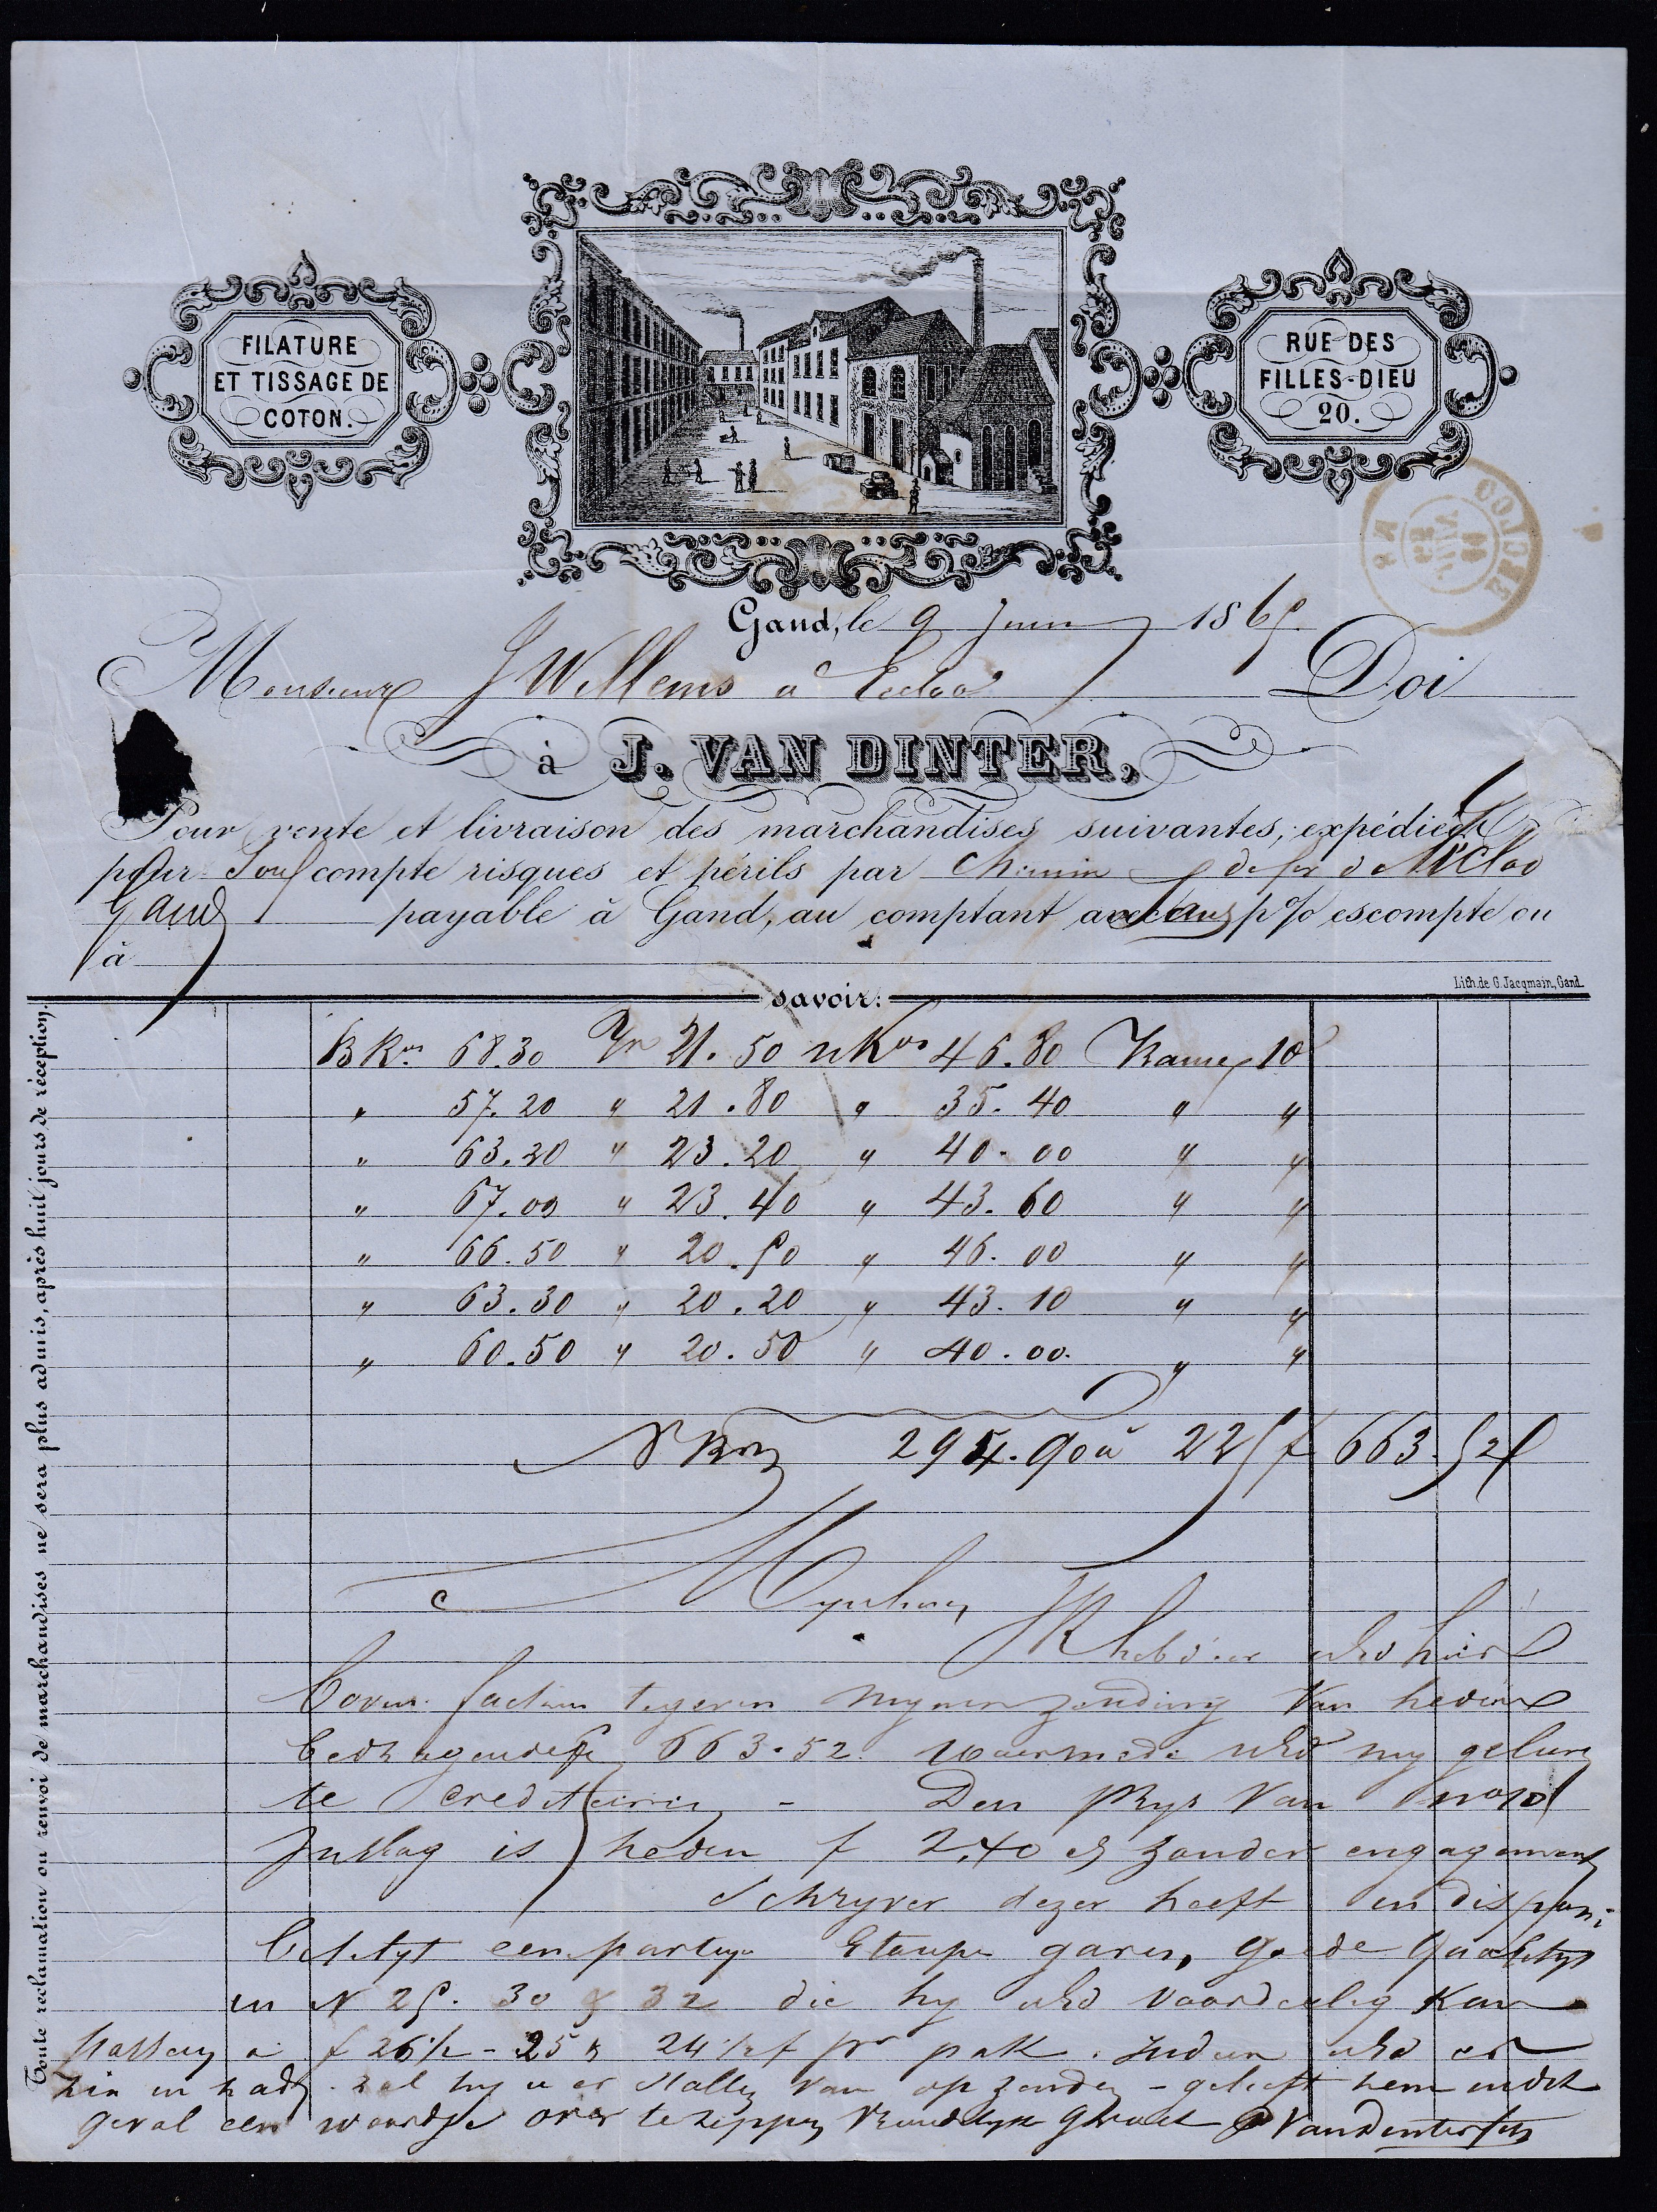 FILATURE
ET TISSAGE DE
COTON.
RUE DES
FILLES-DIEU
20.
ECCLOO
Gand, le 9 Juin 1865
Monsieur J Willems a Eecloo Doi
à J. VAN DINTER,
Pour vente et livraison des marchandises suivantes, expédiées
pour Son compte risques et périls par Chemin de fer de Eecloo
Gand payable à Gand, au comptant avec sans p% escompte ou
à
Lith. de G. Jacqmain, Gand.
savoir:
B Kos 68.30 Tr 21.50 n Kos 46.80 Trame 10
" 57.20 " 21.80 " 35.40 " "
" 63.20 " 23.20 " 40.00 " "
" 67.00 " 23.40 " 43.60 " "
" 66.50 " 20.50 " 46.00 " "
" 63.30 " 20.20 " 43.10 " "
" 60.50 " 20.50 " 40.00 " "
294.90 à 225 f 663.52
Mynheer
Ik heb d'eer UEd hier
boven factuur tegeven mynen zending van heden
bedragende f 663.52 waermede UEd my gelieve
te crediteeren - Den Prys van
Inslag is heden f 2,40 zonder engagement
Schryver dezer heeft en disponi
beliteyt een partye Etoupe garen, goede qualiteyt
in N 25. 30 & 32 die hy UEd voordeelig kan
passen a f 26½ - 25 & 24½ f pr pak. Indien UEd er
zin in hadt zal hy u er stally van op zenden - gelieft hem in dit
geval een woordje over te schryven Vriendelyk groet J Van Dinter
Toute réclamation ou renvoi de marchandises ne sera plus admis, après huit jours de réception.